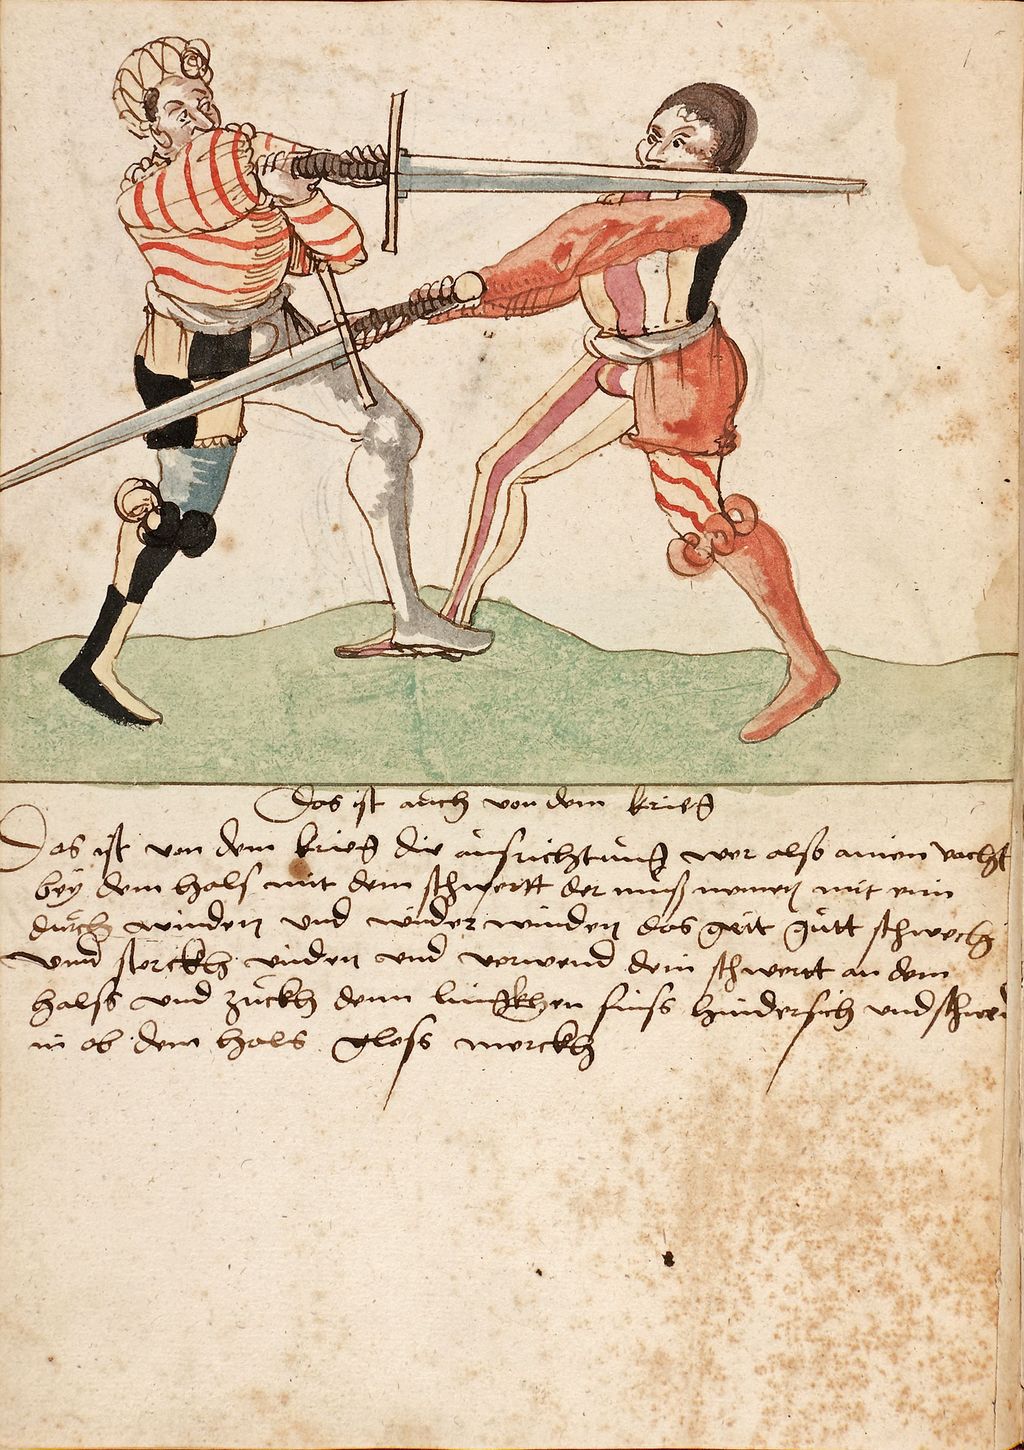 Das ist auch von dem krieg
Das ist von dem krieg die ausrichtung wer also ainen vacht
bey dem hals mit dem schwertt der muß nemen mit ein
durch winden und wider winden das geit gutt schwech
vnnd sterckh winden und verwend dein schwertt an dem
halss und zuckh denn lingkhen fuss hindersich und
in ob dem hals gloss merckh